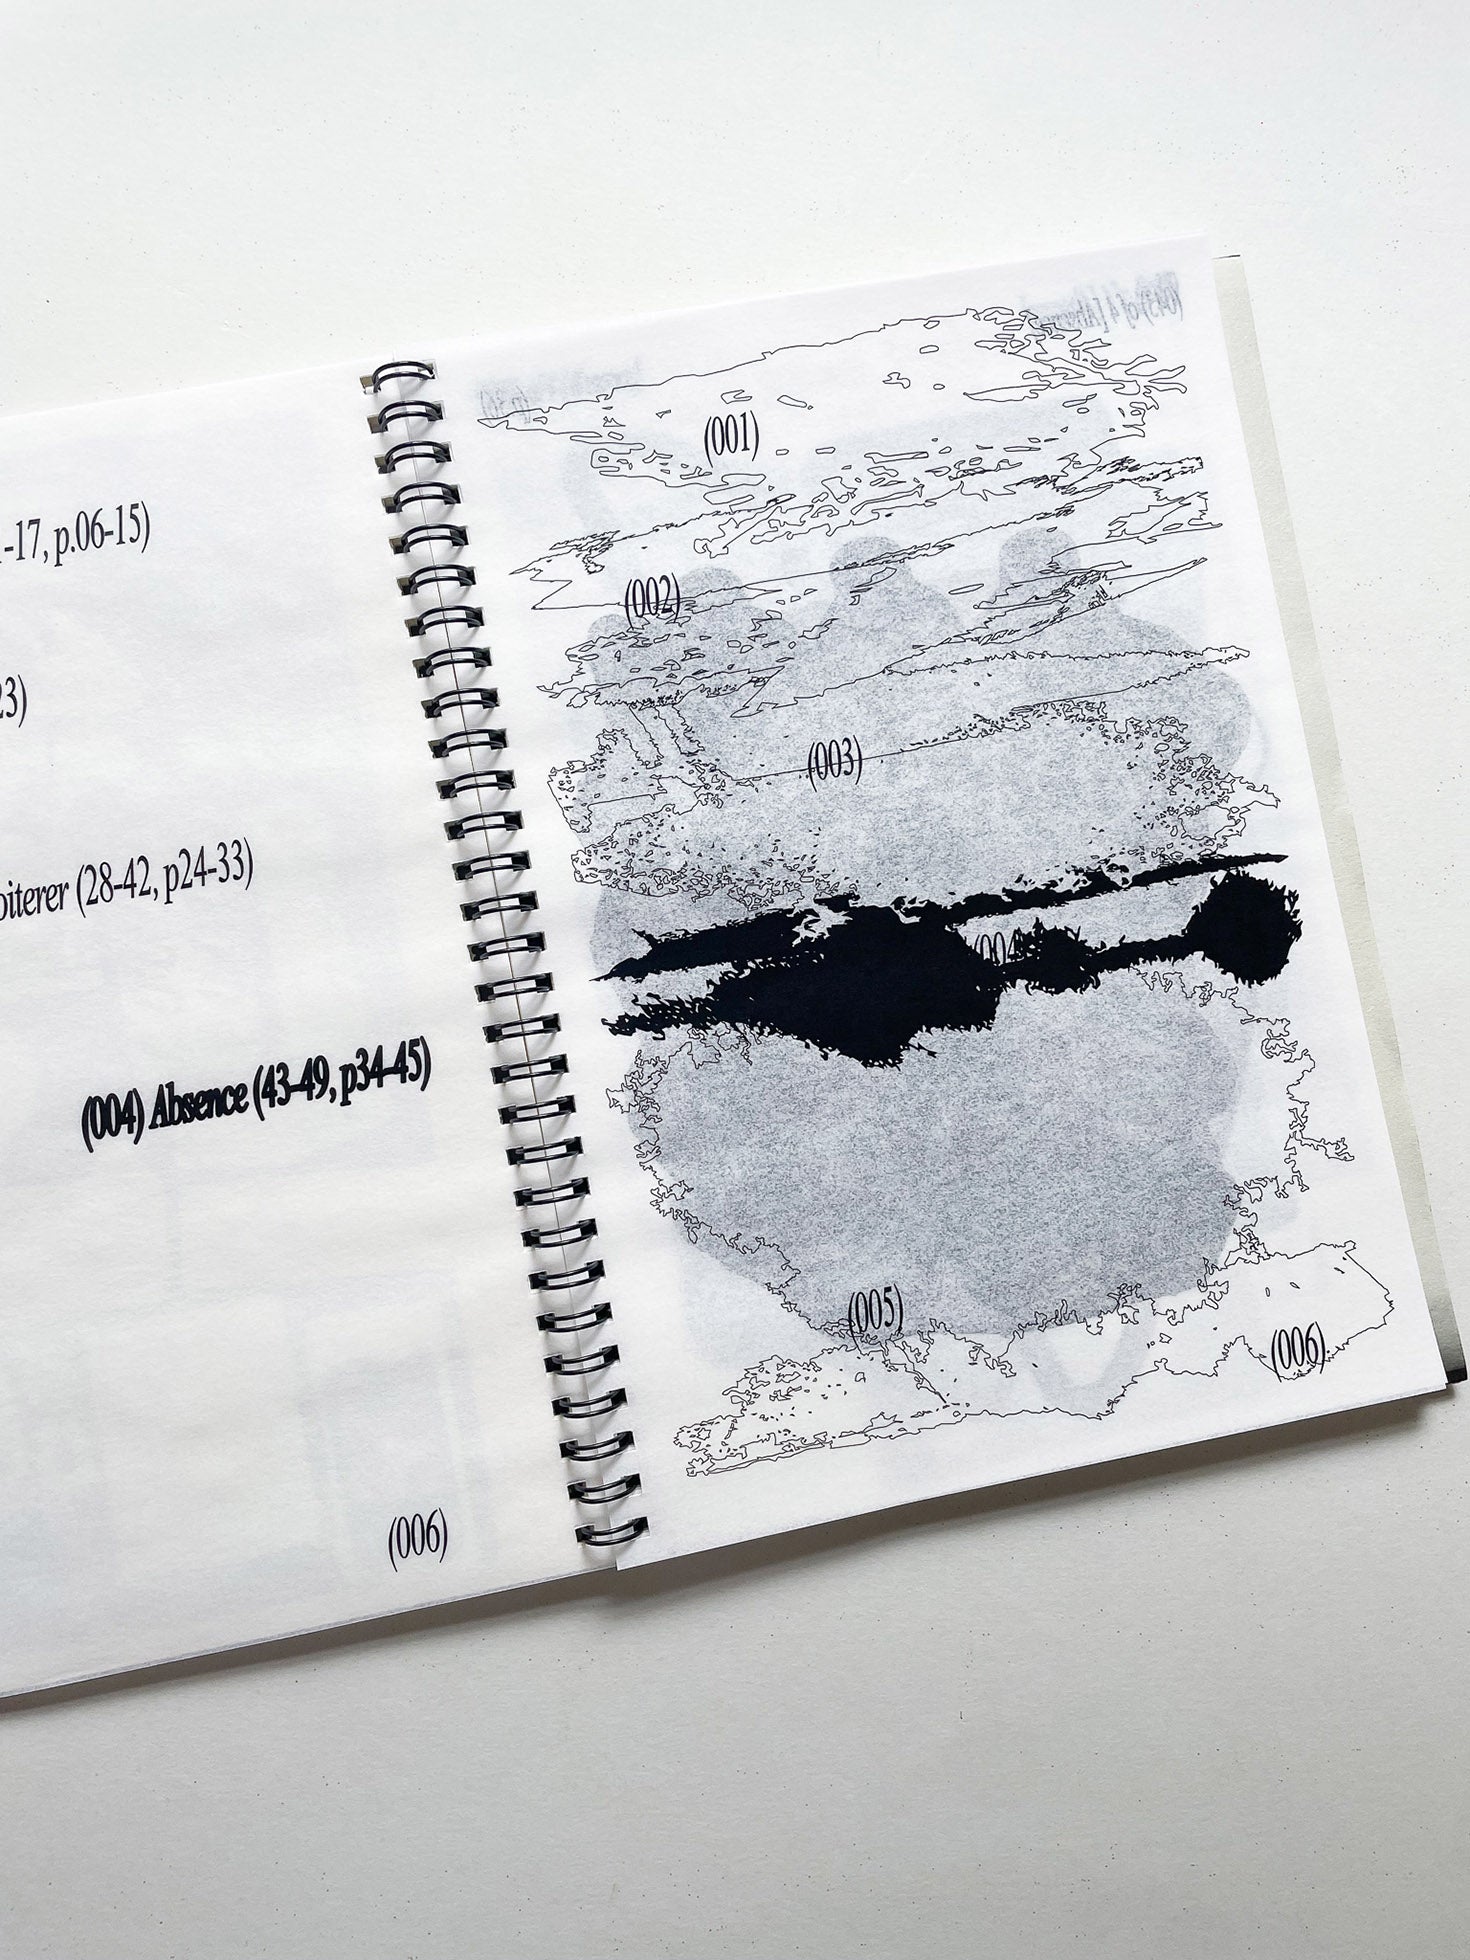 -17, p.06-15)
23)
oiterer (28-42, p24-33)
(004) Absence (43-49, p34-45)
(006)
(043) of 4 [Absence
(p.36)
(001)
(002)
(003)
(004
(005)
(006)